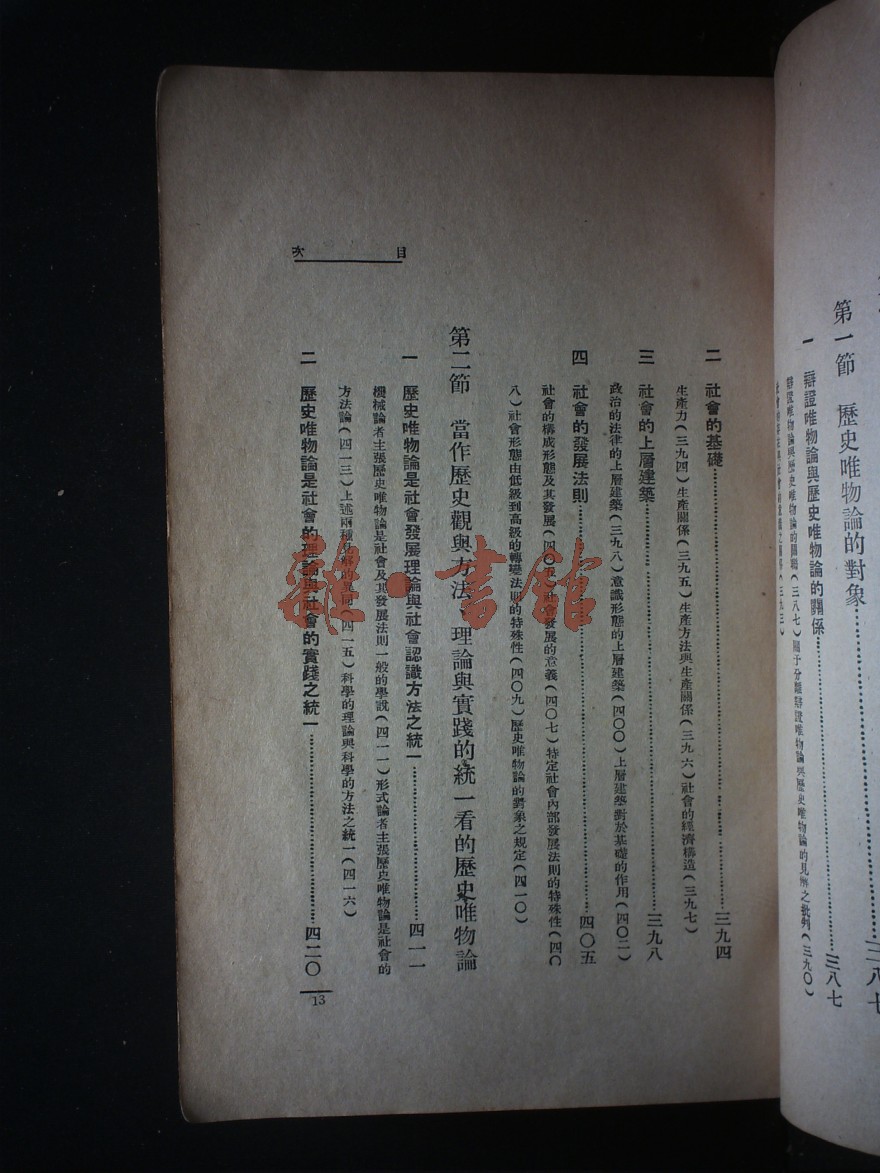 第一節 歷史唯物論的對象……三八七
一 辯證唯物論與歷史唯物論的關係……三八七
辯證唯物論與歷史唯物論的關聯(三八七)關于分離辯證唯物論與歷史唯物論的見解之批判(三九〇)
目次
二 社會的基礎……三九四
生產力(三九四)生產關係(三九五)生產方法與生產關係(三九六)社會的經濟構造(三九七)
三 社會的上層建築……三九八
政治的法律的上層建築(三九八)意識形態的上層建築(四〇〇)上層建築對於基礎的作用(四〇二)
四 社會的發展法則……四〇五
社會的構成形態及其發展(四〇五)社會發展的意義(四〇七)特定社會內部發展法則的特殊性(四〇
八)社會形態由低級到高級的轉變法則的特殊性(四〇九)歷史唯物論的對象之規定(四一〇)
第二節 當作歷史觀與方法、理論與實踐的統一看的歷史唯物論
一 歷史唯物論是社會發展理論與社會認識方法之統一……四一一
機械論者主張歷史唯物論是社會及其發展法則一般的學說(四一一)形式論者主張歷史唯物論是社會的
方法論(四一三)上述兩種見解的異同(四一五)科學的理論與科學的方法之統一(四一六)
二 歷史唯物論是社會的理論與社會的實踐之統一……四二〇
13
雜·書館